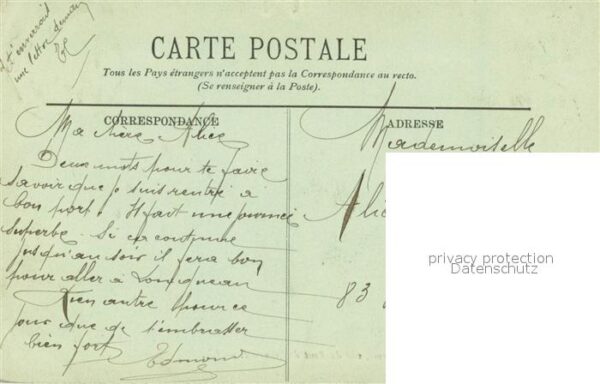 t'enverrai
une lettre demain
CARTE POSTALE
Tous les Pays étrangers n'acceptent pas la Correspondance au recto.
(Se renseigner à la Poste).
CORRESPONDANCE
Ma chere Alice
Deux mots pour te faire
savoir que je suis rentré à
bon port. Il fait une journée
superbe. Si ca continue
jusqu'au soir il fera bon
pour aller à
Rien autre pour ce
jour que de t'embrasser
bien fort
Edmond
ADRESSE
Mademoiselle
Alic
83
privacy protection
Datenschutz